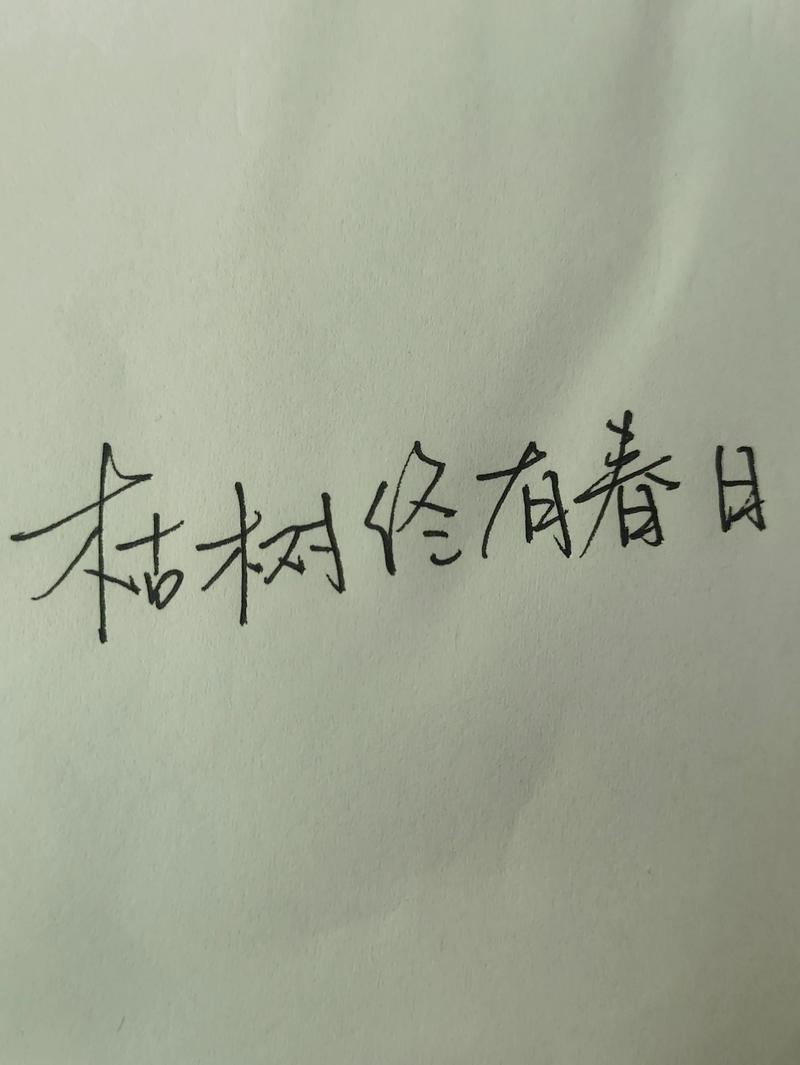 枯树终有春日